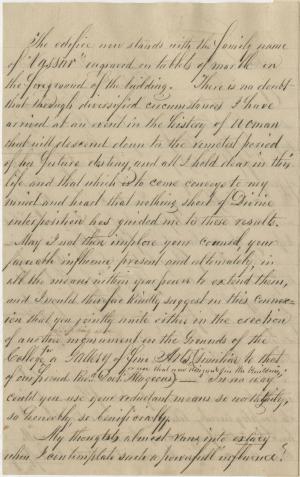 The edifice now stands with the family name
of "Vassar" engraved on tablets of marble in
the foreground of the building. There is no doubt
that through diversified circumstances I have
arrived at an event in the history of woman
that will descend down to the remotest period
of her future destiny, and all I hold dear in this
life and that which is to come conveys to my
mind and heart that nothing short of Divine
interposition has guided me to these results.
May I not then implore your counsel, your
favorable influence present and ultimately, in
all the means within your power to extend them,
and I would therefore kindly suggest in this connex-
ion that you jointly unite either in the erection
of another monument in the Grounds of the
College a Gallery of Fine Arts, similar to that
or on that now designed in the Building
of
In no way
could you use your redundant means so worthily,
so honorably, so beneficially.
My thoughts almost runs into extacy
when I contemplate such a powerful influence!